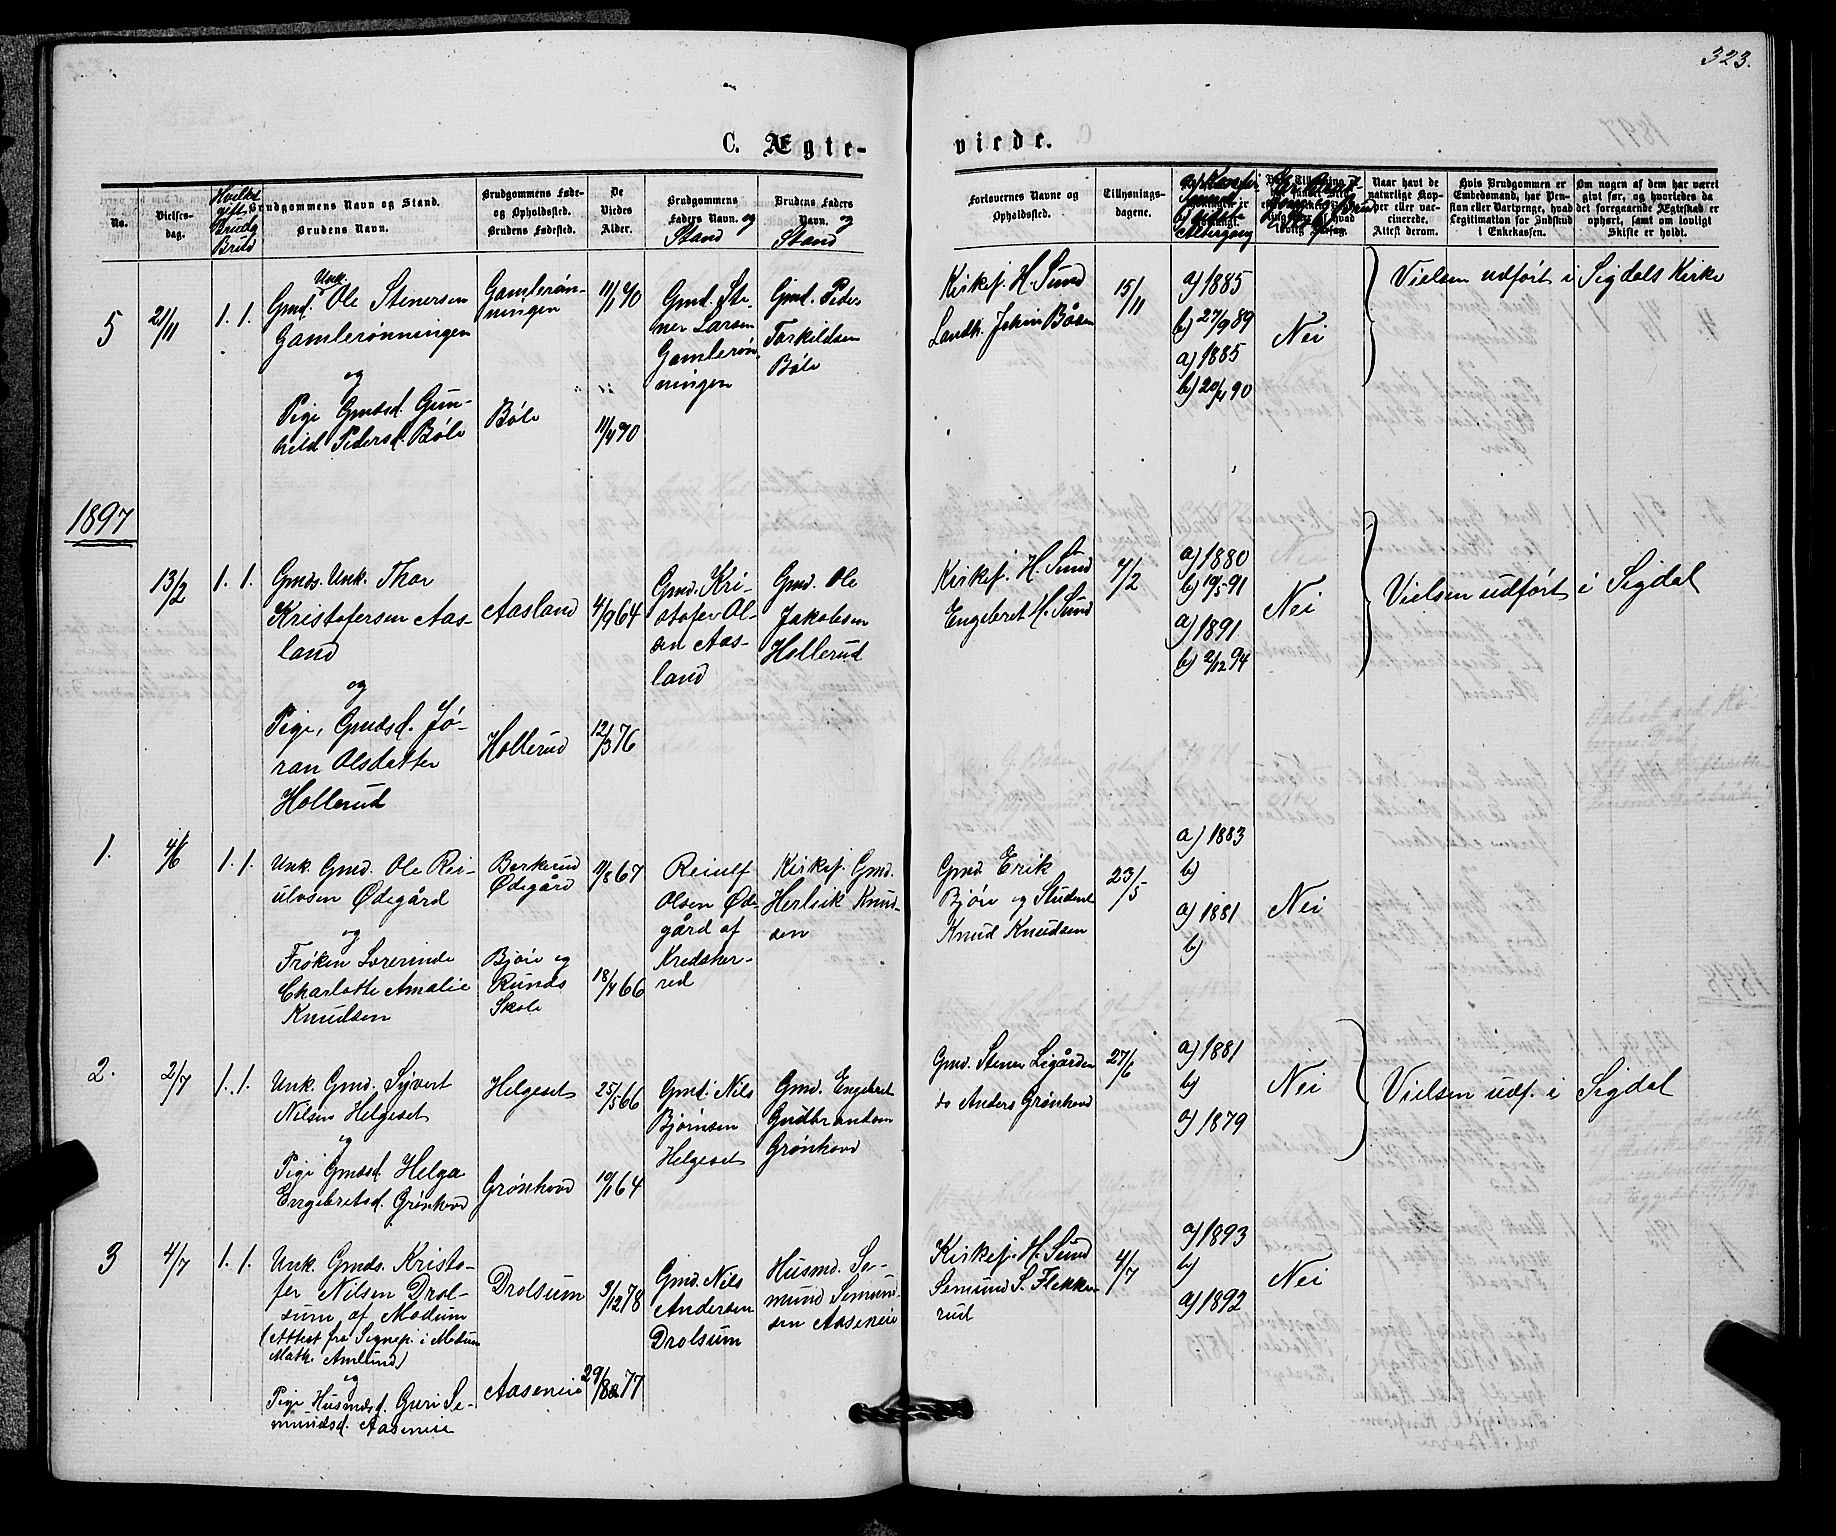 323.
C. Ægte-
viede.
No.
Vielses-
dag.
Hvilket
gift
Brudg
Brud
Brudgommens Navn og Stand.
Brudens Navn.
Brudgommens Føde-
og Opholdssted.
Brudens Fødested.
De
Viedes
Alder.
Brudgommens
Faders Navn. og
Stand
Brudens Faders
Navn. og
Stand
Forlovernes Navne og
Opholdssted.
Tillysnings-
dagene.
Naar havt de
naturlige Kop-
per eller vac-
cinerede.
Attest derom.
Hvis Brudgommen er
Embedsmand, har Pen-
sion eller Vartpenge, hvad
Legitimation for Indskud
i Enkekassen.
Om nogen af dem har været
gift før, og hvorledes da
det foregaaende Ægteskab er
ophørt, samt om lovligt
Skifte er holdt.
5
21/11
1. 1.
Unk.
Gmd. Ole Stenersen
Gamlerønningen
og
Pige Gmdsd. Gun-
hild Pedersd. Bøle
Gamlerøn-
ningen
Bøle
11/1 70
11/4 70
Gmd. Ste-
ner Larsen
Gamlerøn
ningen
Gmd. Peder
Torkildsen
Bøle
Kirkesj. H. Sund
Landh. Jokim Båsen
15/11
a) 1885
b) 27/9 89
a) 1885
b) 20/4 90
Nei
Vielsen udført i Sigdals Kirke
1897
13/2
1. 1.
Gmds. Unk. Thor
Kristofersen Aas-
land
og
Pige, Gmdsd. Jø-
ran Olsdatter
Hollerud
Aasland
Hollerud
4/9 64
12/3 76
Gmd. Kri-
stofer Ol-
sen Aas-
land
Gmd. Ole
Jakobsen
Hollerud
Kirkesj. H. Sund
Engebret H. Sund
7/2
a) 1880
b) 19/5 91
a) 1891
b) 2/12 94
Nei
Vielsen udført i Sigdal
1.
4/6
1. 1.
Unk. Gmd. Ole Rei-
ulvsen Ødegård
og
Frøken Lærerinde
Charlotte Amalie
Knudsen
Berkerud
Ødegård
Bjøre og
Runds
Skole
11/8 67
18/4 66
Reiulf
Olsen Øde
gård af
Kredsher-
red
Kirkesj. Gmd.
Herleik Knud-
sen
Gmd. Erik
Bjøre og Student
Knud Knudsen
23/5
a) 1883
b)
a) 1881
b)
Nei
2.
2/7
1. 1.
Unk. Gmd. Syvert
Nilsen Helgeset
og
Pige Gmdsd. Helga
Engebretsd. Grønhovd
Helgeset
Grønhovd
25/5 66
10/1 64
Gmd. Nils
Bjørnsen
Helgeset
Gmd. Engebret
Gudbrandsen
Grønhovd
Gmd. Stener Ligården
do Anders Grønhovd
27/6
a) 1881
b)
a) 1879
Nei
Vielsen udf. i Sigdal
3
4/7
1. 1.
Unk. Gmds. Kristo-
fer Nilsen Drol-
sum af Modum
(Attest fra Sognepr. i Modum
Math. Amlund)
og
Pige Husmdsd. Guri Se-
mundsd. Aaseneie
Drolsum
Aaseneie
3/12 78
29/8 77
Gmd. Nils
Andersen
Drolsum
Husmd. Se-
mund Semund
sen Aaseneie
Kirkesj. H. Sund
Semund S. Flekke-
rud
4/7
a) 1893
b)
a) 1892
Nei